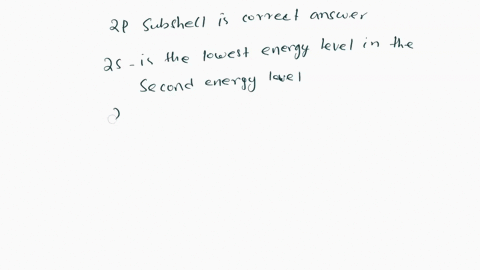 2P Subshell is correct answer
2S - is the lowest energy level in the
Second energy level